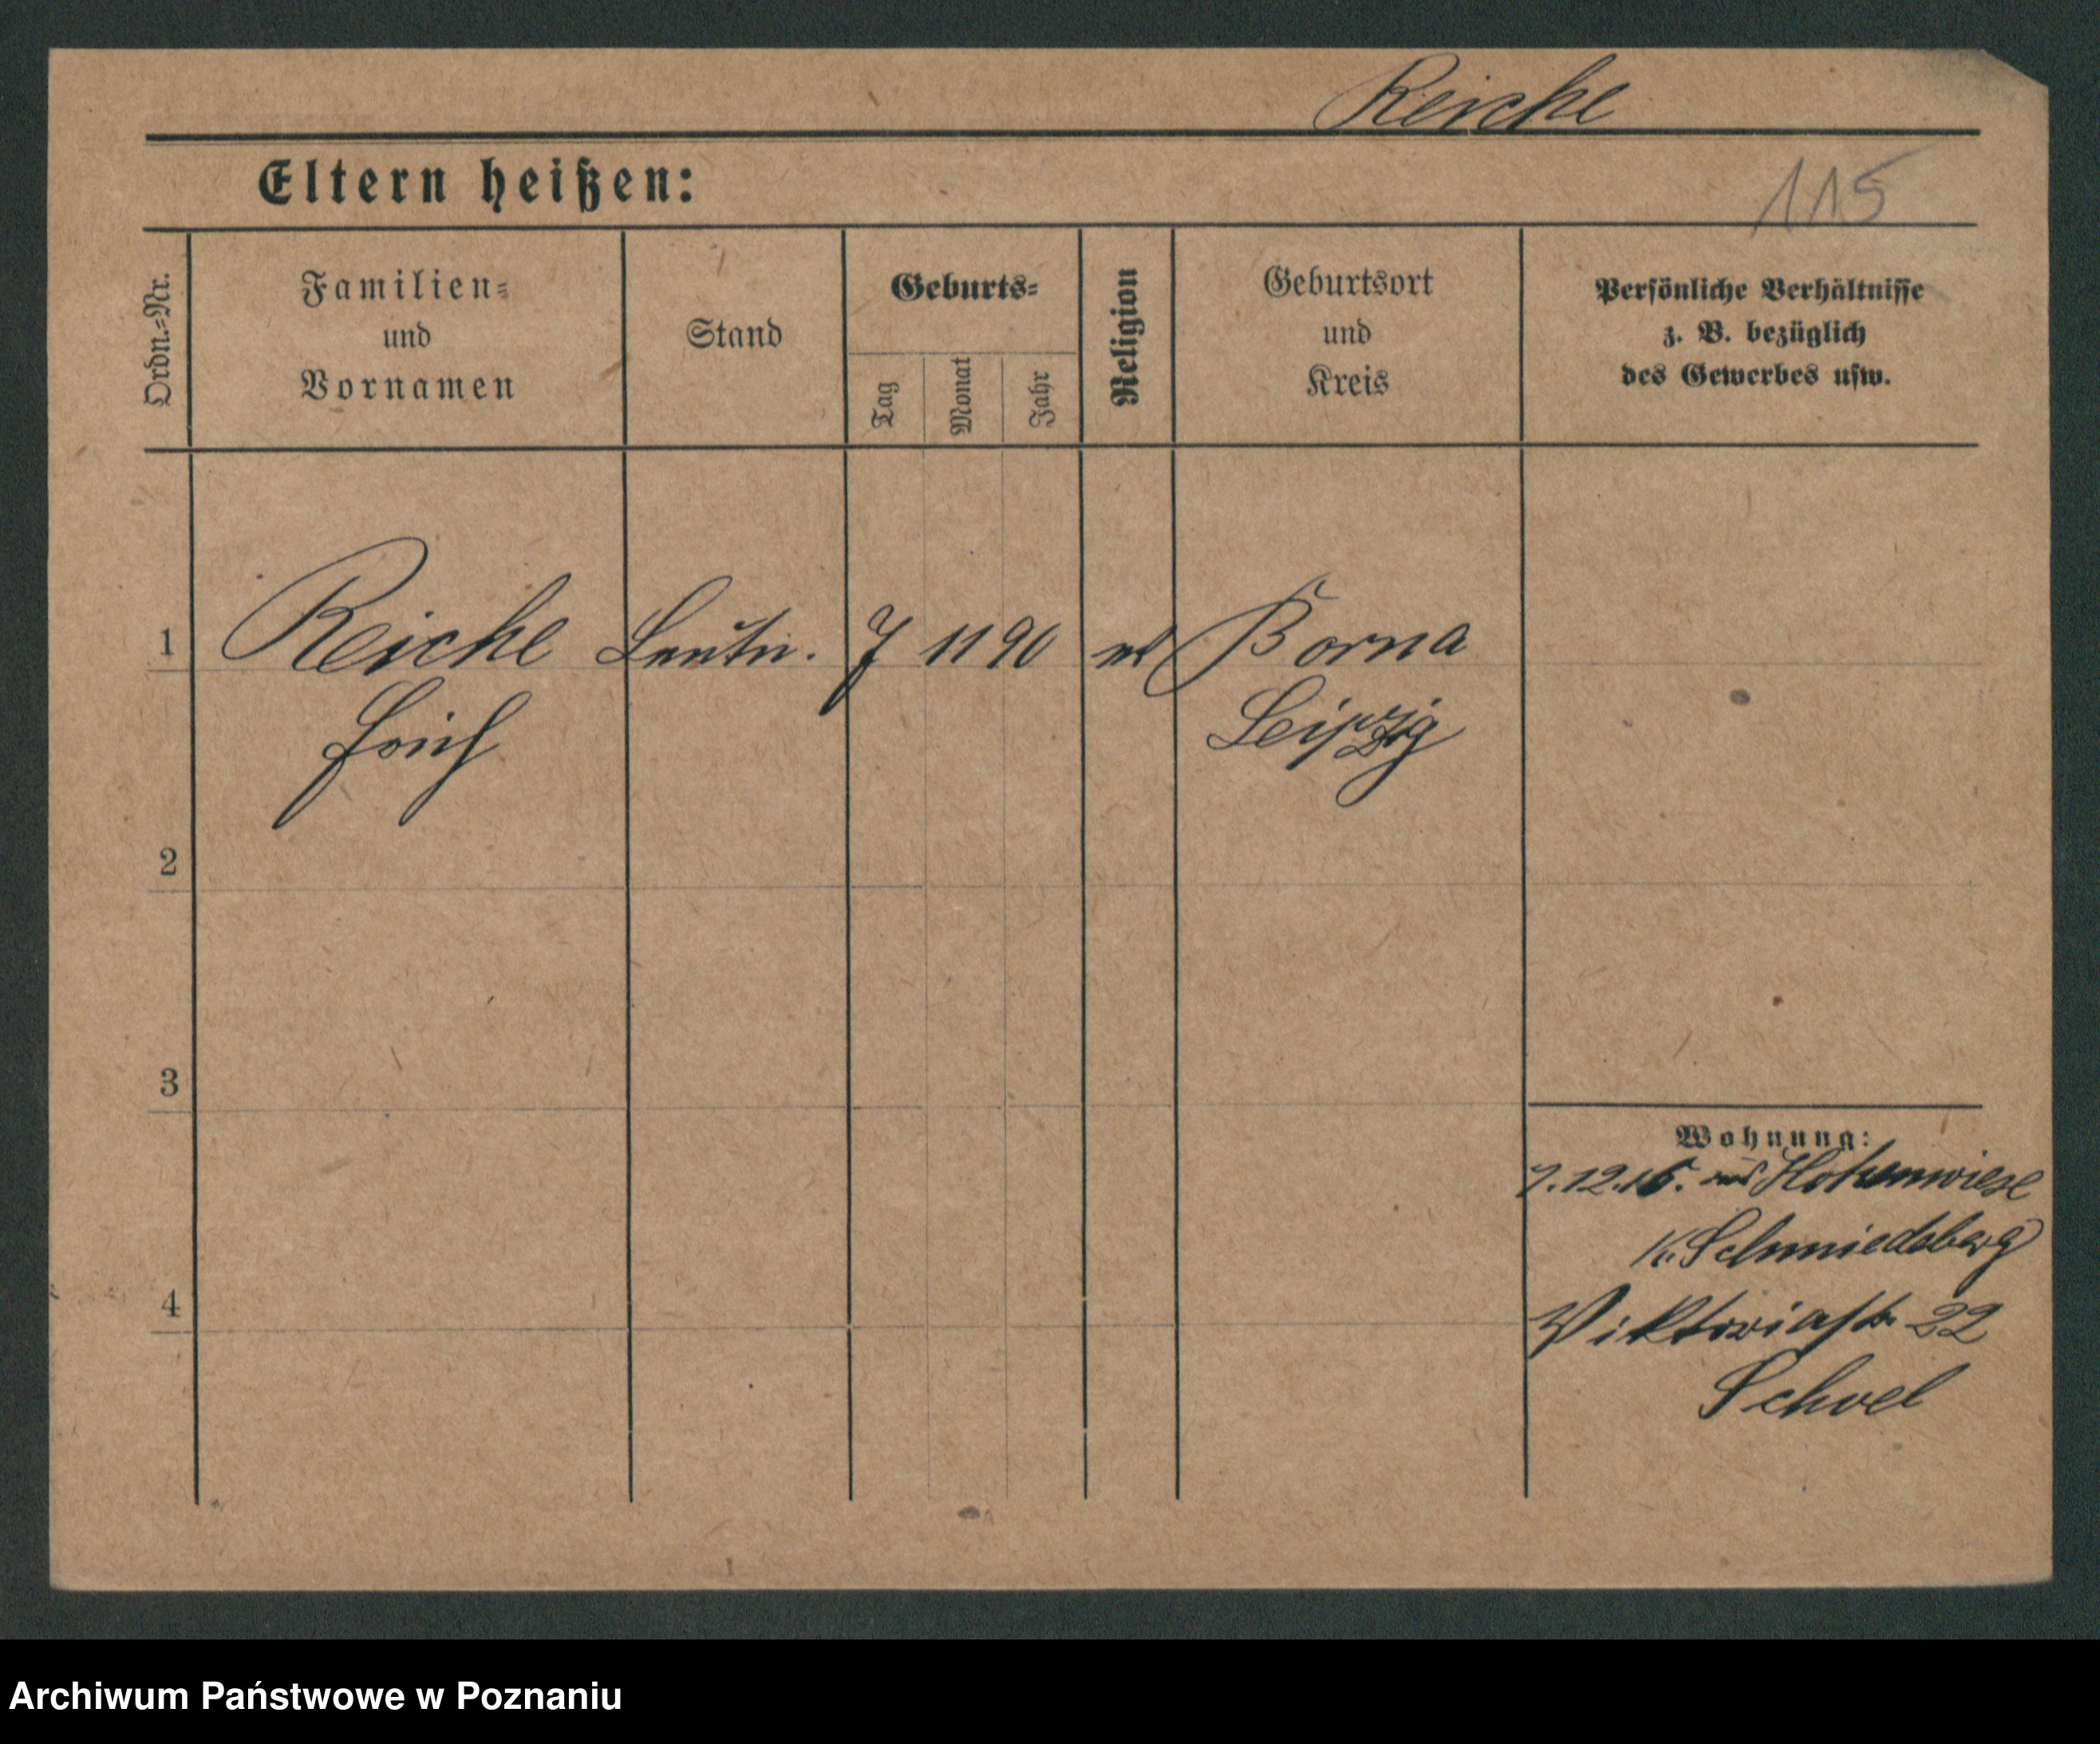 Reiche
Eltern heißen:
115
Ordn.=Nr.
Familien=
und
Vornamen
Stand
Geburts=
Tag
Monat
Jahr
Religion
Geburtsort
und
Kreis
Persönliche Verhältnisse
z. B. bezüglich
des Gewerbes usw.
1 Reiche Leutn. 7 11 90 Borna
Erich Leipzig
2
3
4
Wohnung:
7.12.15. aus Hohenwiese
K. Schmiedeberg
Viktoriastr. 22
Archiwum Państwowe w Poznaniu